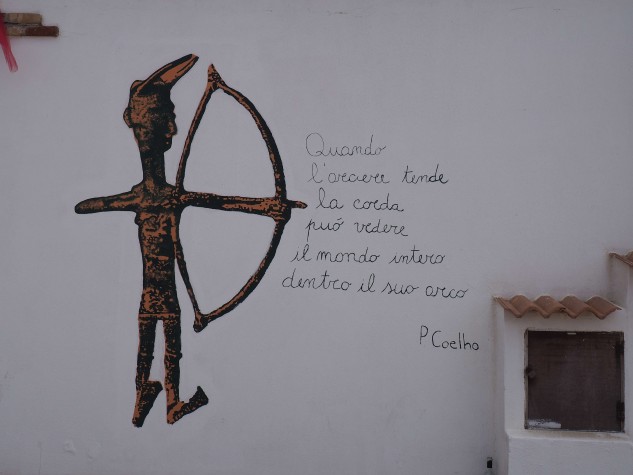 Quando
l'arciere tende
la corda
può vedere
il mondo intero
dentro il suo arco
P Coelho